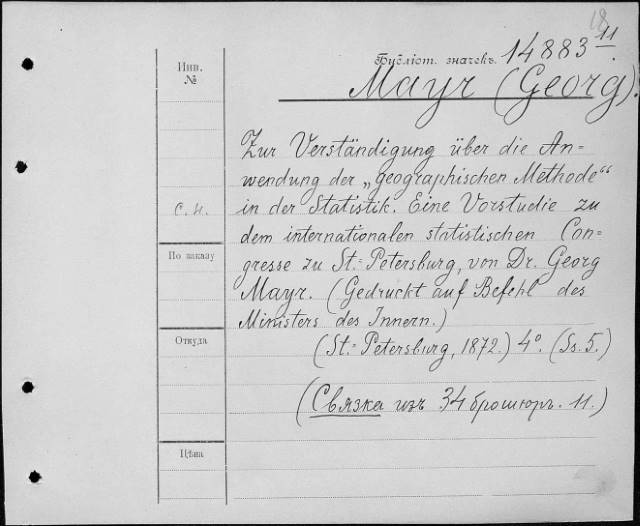 18
Библіот. значекъ. 14883 11
Инв.
№
Mayr (Georg).
Zur Verständigung über die An=
wendung der „geographischen Methode“
с. н. in der Statistik. Eine Vorstudie zu
dem internationalen statistischen Con=
По заказу
gresse zu St.=Petersburg, von Dr. Georg
Mayr. (Gedruckt auf Befehl des
Ministers des Innern.)
Откуда
(St.=Petersburg, 1872.) 4°. (Ss. 5.)
(Связка изъ 34 брошюръ. 11.)
Цѣна